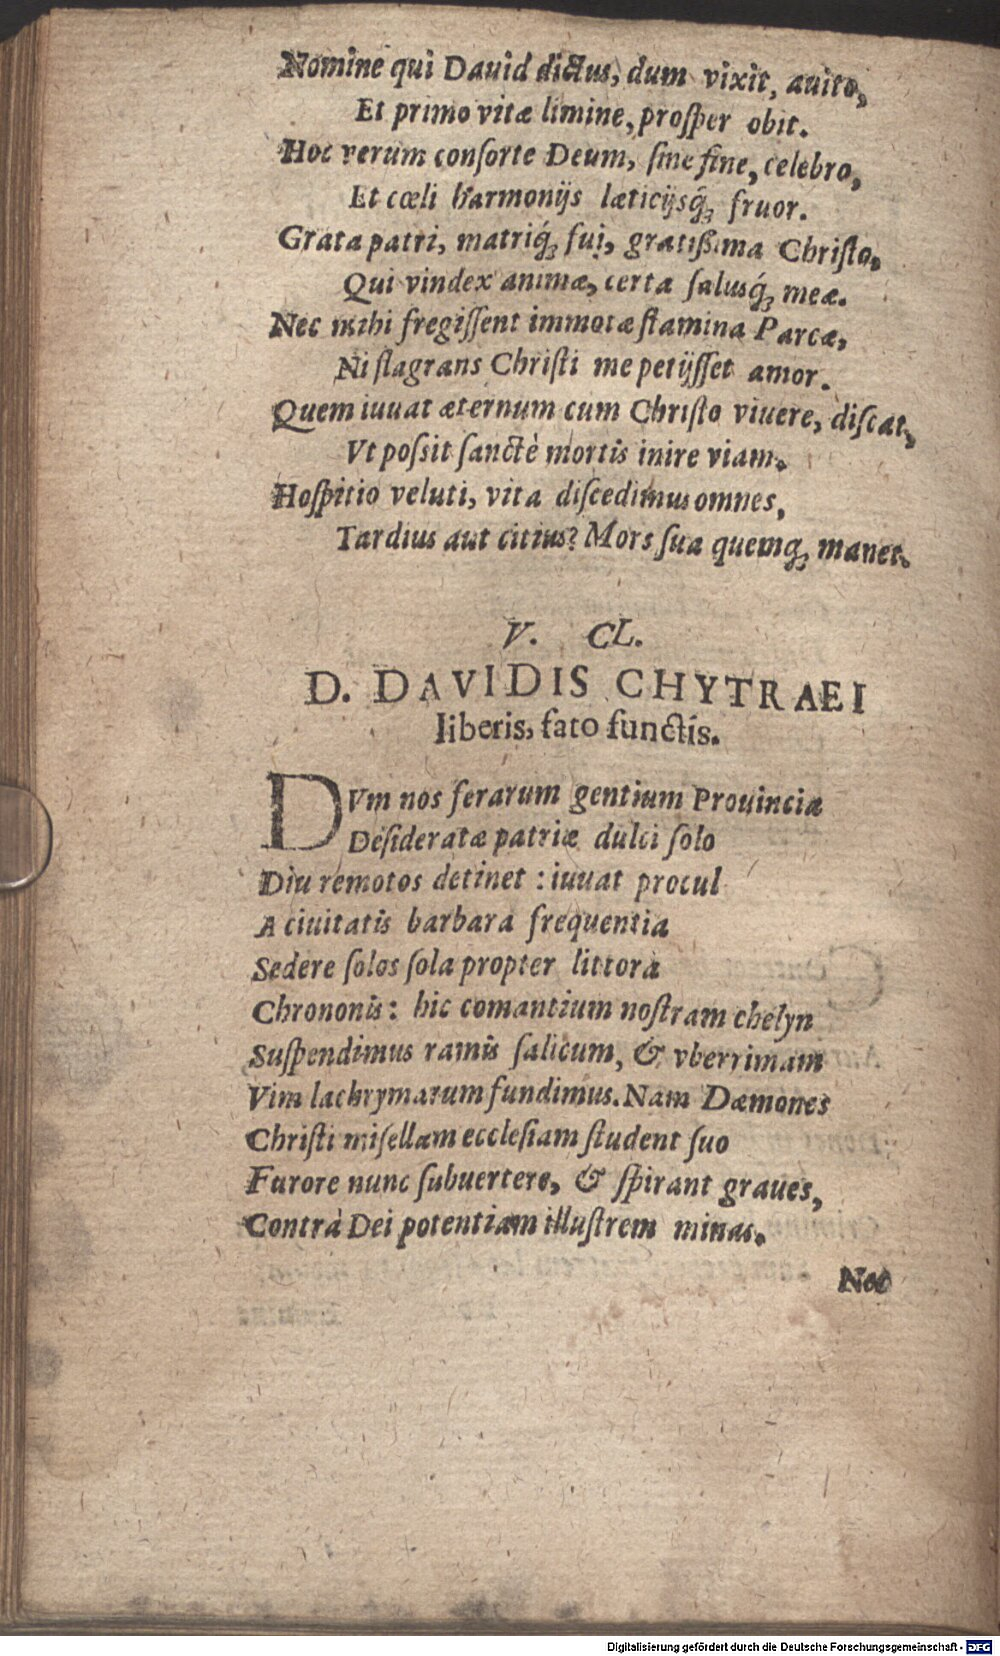 Nomine qui Dauid dictus, dum vixit, auito,
Et primo vitæ limine, proſper obit.
Hoc verum conſorte Deum, ſine fine, celebro,
Et cœli harmonijs læticijsq́ꝫ fruor.
Grata patri, matriq́ꝫ fui, gratißima Chriſto,
Qui vindex animæ, certa ſalusq́ꝫ meæ.
Nec mihi fregiſſent immotæ ſtamina Parcæ,
Ni flagrans Chriſti me petijſſet amor.
Quem iuuat æternum cum Chriſto viuere, diſcat,
Vt poſsit ſanctè mortis inire viam.
Hoſpitio veluti, vita diſcedimus omnes,
Tardius aut citius? Mors ſua quemqꝫ manet.
V. CL.
D. DAVIDIS CHYTRAEI
liberis, fato functis.
DVm nos ferarum gentium Prouinciæ
Deſideratæ patriæ dulci ſolo
Diu remotos detinet: iuuat procul
A ciuitatis barbara frequentia
Sedere ſolos ſola propter littora
Chrononis: hic comantium noſtram chelyn
Suſpendimus ramis ſalicum, & vberrimam
Vim lachrymarum fundimus. Nam Dæmones
Chriſti miſellam eccleſiam ſtudent ſuo
Furore nunc ſubuertere, & ſpirant graues,
Contrà Dei potentiam illuſtrem minas.
Nec
Digitalisierung gefördert durch die Deutsche Forschungsgemeinschaft - DFG